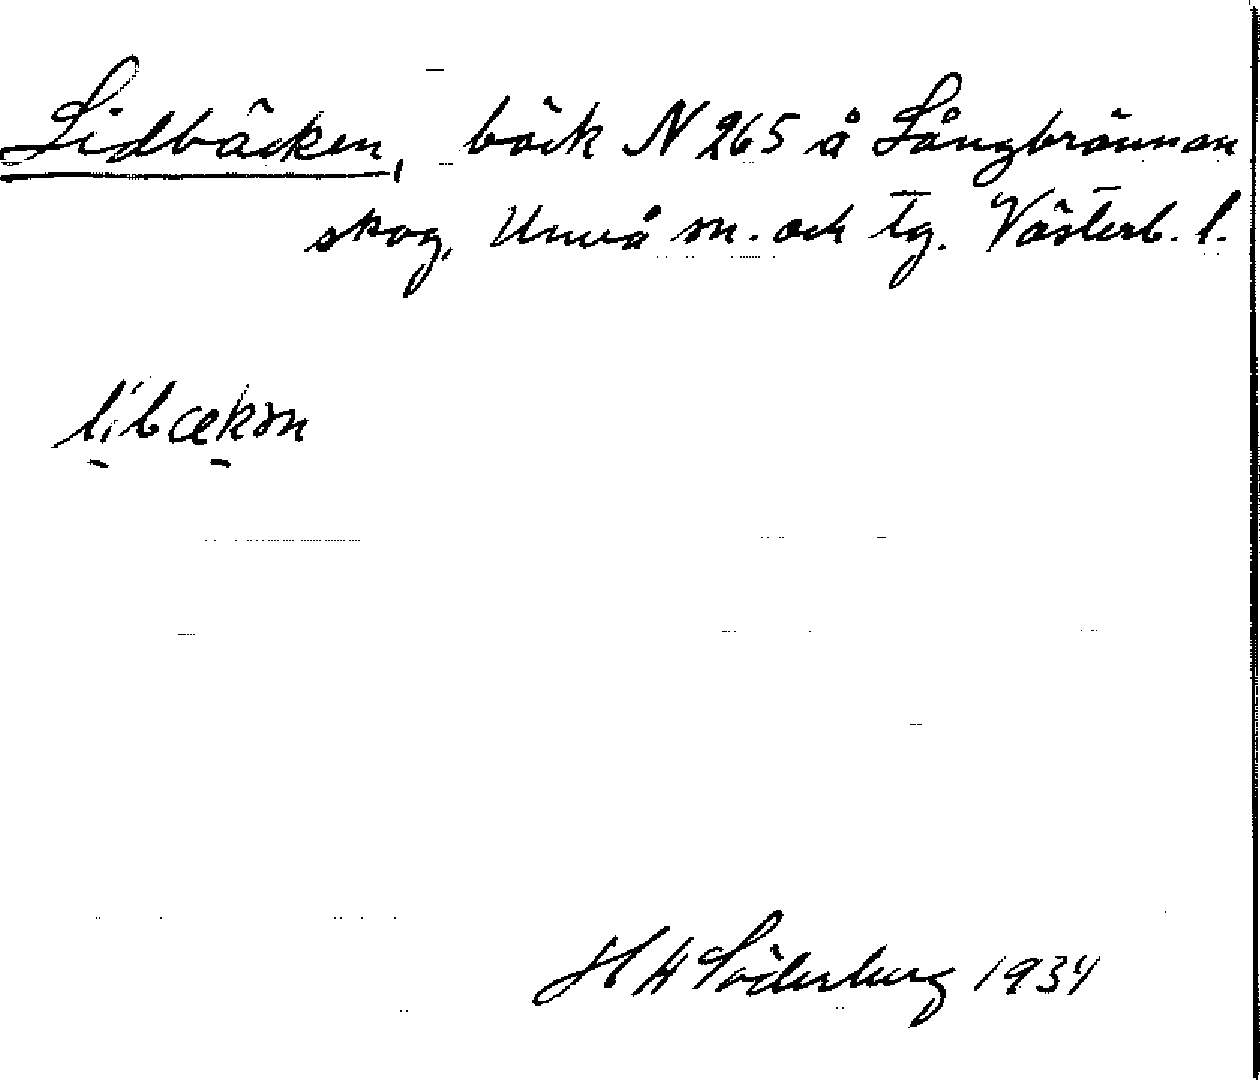 Lidbäcken, bäck N 265 å Långbrännan
skog, Umeå sn. och tg. Västerb. l.
li̠'bæ̠kən
H H Söderberg 1934